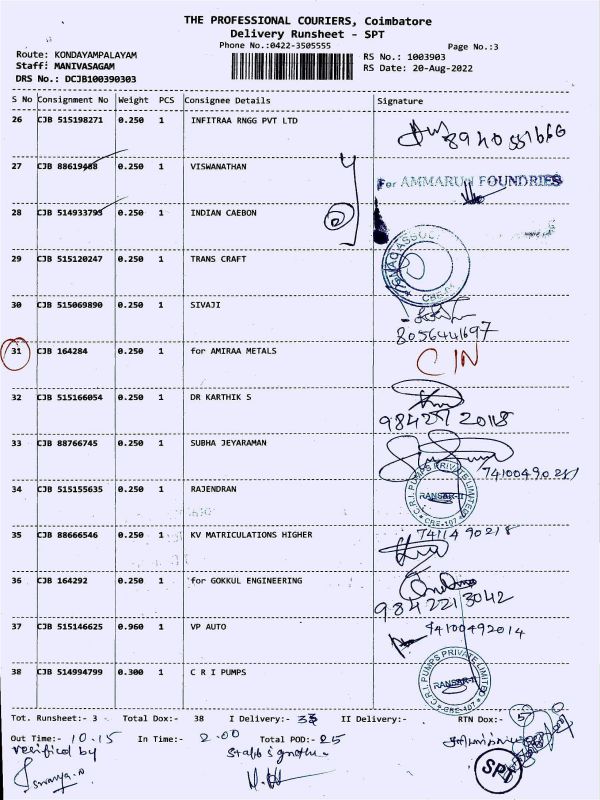 THE PROFESSIONAL COURIERS, Coimbatore
Delivery Runsheet - SPT
Phone No.:0422-3505555
Page No.:3
Route: KONDAYAMPALAYAM
Staff: MANIVASAGAM
DRS No.: DCJB100390303
RS No.: 1003903
RS Date: 20-Aug-2022
S No Consignment No Weight PCS Consignee Details Signature
26 CJB 515198271 0.250 1 INFITRAA RNGG PVT LTD
27 CJB 88619488 0.250 1 VISWANATHAN
For AMMARUN FOUNDRIES
28 CJB 514933793 0.250 1 INDIAN CAEBON
29 CJB 515120247 0.250 1 TRANS CRAFT
30 CJB 515069890 0.250 1 SIVAJI
8056441697
31 CJB 164284 0.250 1 for AMIRAA METALS
CIN
32 CJB 515166054 0.250 1 DR KARTHIK S
33 CJB 88766745 0.250 1 SUBHA JEYARAMAN
34 CJB 515155635 0.250 1 RAJENDRAN
C.R.I. PUMPS PRIVATE LIMITED
RANSAR-II
CBE-107
35 CJB 88666546 0.250 1 KV MATRICULATIONS HIGHER
7411490218
36 CJB 164292 0.250 1 for GOKKUL ENGINEERING
9842213042
37 CJB 515146625 0.960 1 VP AUTO
94100492014
38 CJB 514994799 0.300 1 C R I PUMPS
C.R.I. PUMPS PRIVATE LIMITED
RANSAR-II
CBE-107
Tot. Runsheet:- 3 Total Dox:- 38 I Delivery:- 33 II Delivery:- RTN Dox:- 5
Out Time:- 10.15 In Time:- 2.00 Total POD:- 25
verified by
SPT